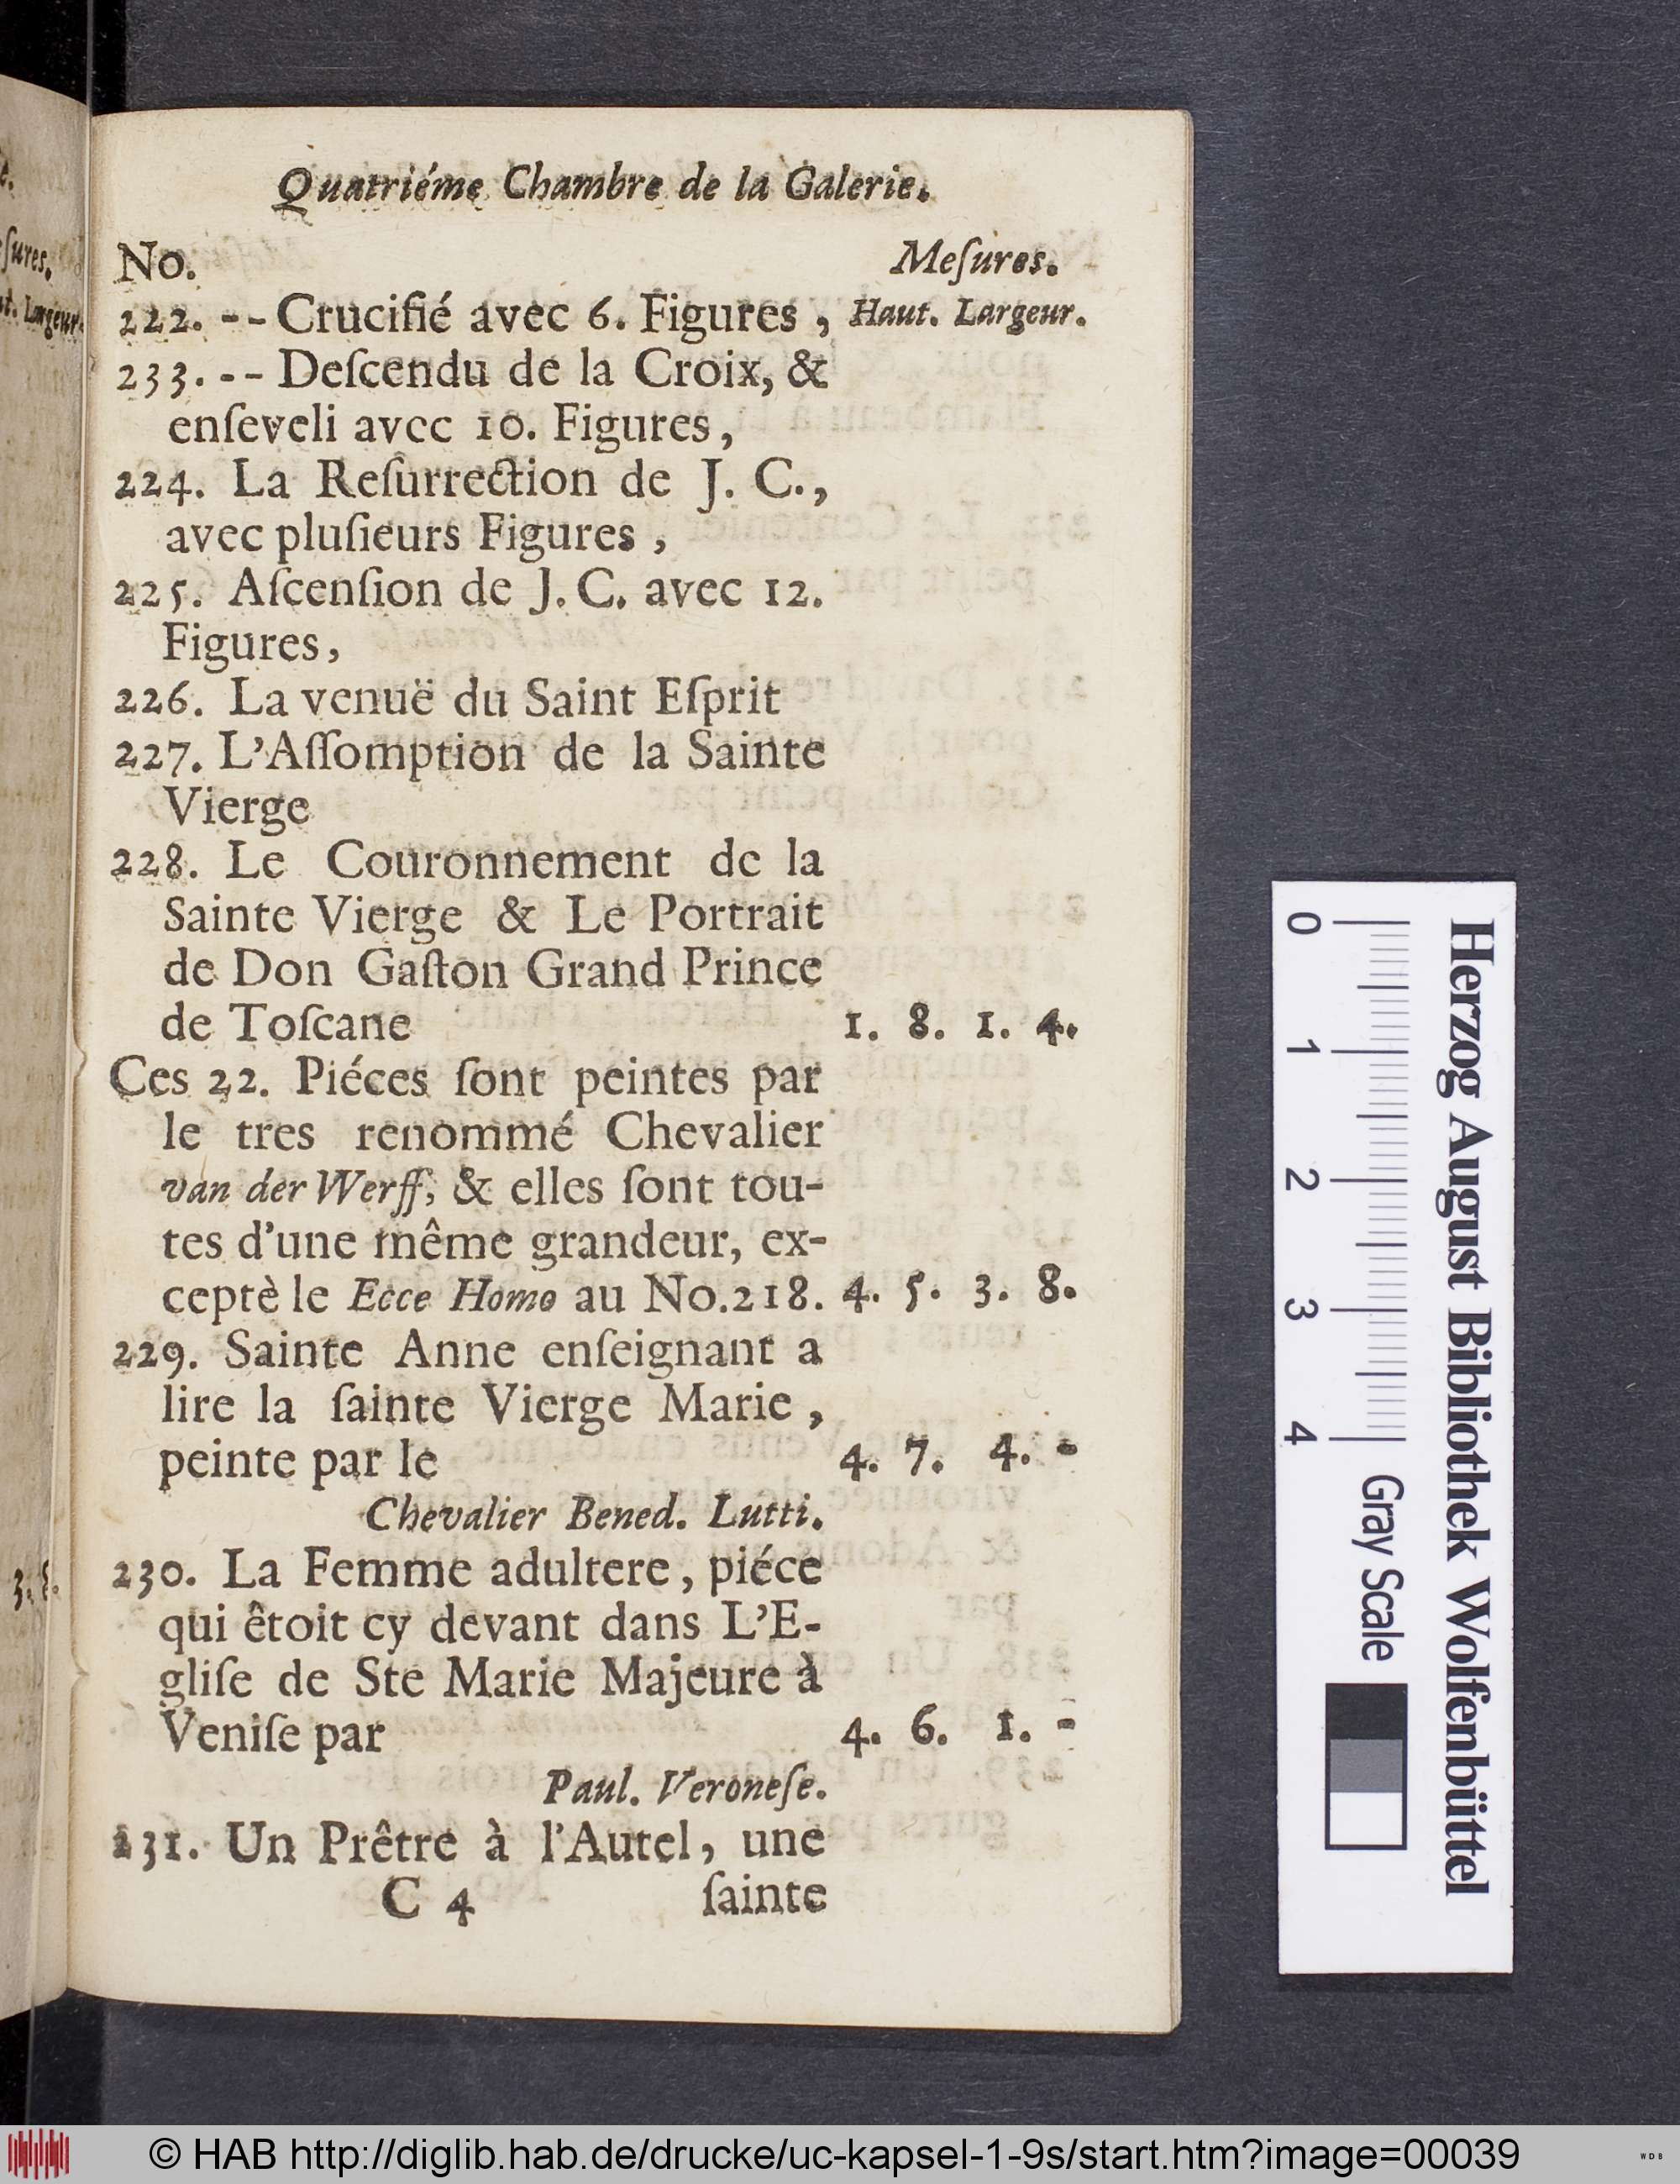 Quatriéme Chambre de la Galerie.
No. Meſures.
222. -- Crucifié avec 6. Figures, Haut. Largeur.
233. -- Deſcendu de la Croix, &
enſeveli avec 10. Figures,
224. La Reſurrection de J. C.,
avec pluſieurs Figures,
225. Aſcenſion de J. C. avec 12.
Figures,
226. La venuë du Saint Eſprit
227. L'Aſſomption de la Sainte
Vierge
228. Le Couronnement de la
Sainte Vierge & Le Portrait
de Don Gaſton Grand Prince
de Toſcane 1. 8. 1. 4.
Ces 22. Piéces ſont peintes par
le tres renommé Chevalier
van der Werff, & elles ſont tou-
tes d'une même grandeur, ex-
ceptè le Ecce Homo au No. 218. 4. 5. 3. 8.
229. Sainte Anne enſeignant a
lire la ſainte Vierge Marie,
peinte par le 4. 7. 4. -
Chevalier Bened. Lutti.
230. La Femme adultere, piéce
qui êtoit cy devant dans L'E-
gliſe de Ste Marie Majeure à
Veniſe par 4. 6. 1. -
Paul. Veroneſe.
231. Un Prêtre à l'Autel, une
C 4 ſainte
ſures.
Largeur.
3. 8.
Herzog August Bibliothek Wolfenbüttel
0 1 2 3 4 Gray Scale
© HAB http://diglib.hab.de/drucke/uc-kapsel-1-9s/start.htm?image=00039
WDB